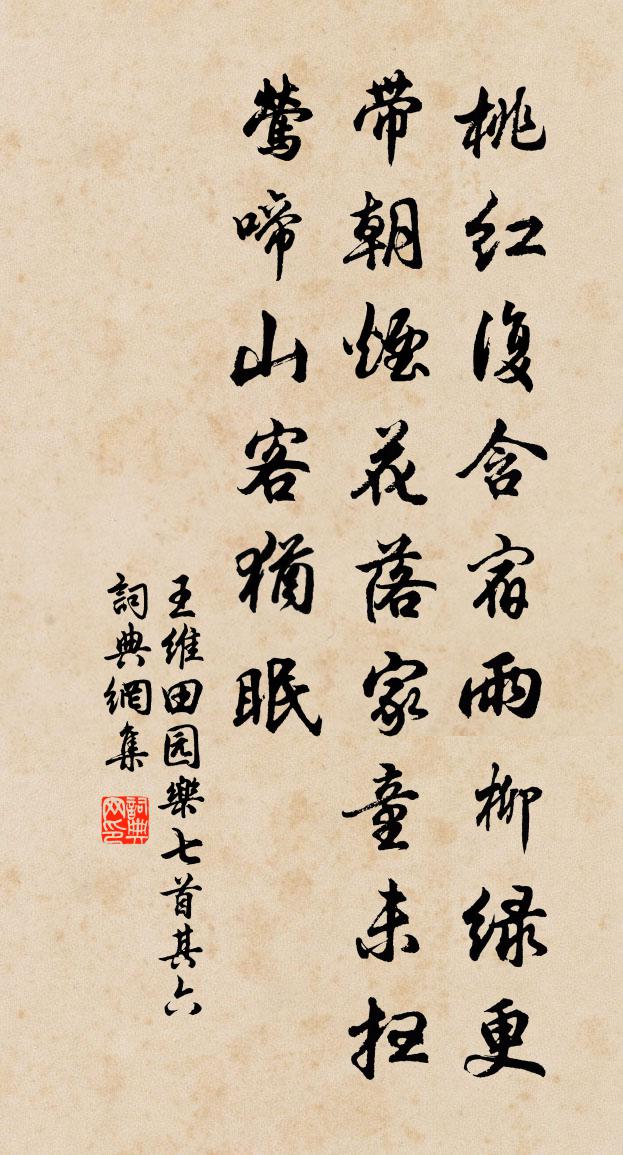 桃红復含宿雨柳绿更
带朝煙花落家童未扫
莺啼山客猶眠
王维田园樂七首其六
詞典網集
詞典网印